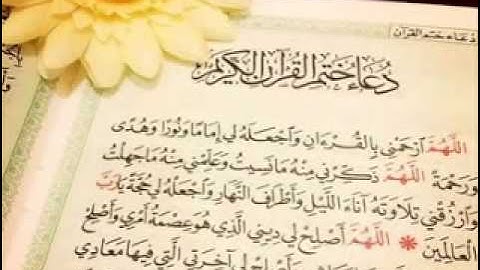 دُعَاء خَتم القُرآن
دُعَاءُ خَتْمِ الْقُرْآنِ الْكَرِيمِ
اللَّهُمَّ ارْحَمْنِي بِالْقُرْءَانِ وَاجْعَلْهُ لِي إِمَامًا وَنُورًا وَهُدًى
وَرَحْمَةً اللَّهُمَّ ذَكِّرْنِي مِنْهُ مَانَسِيتُ وَعَلِّمْنِي مِنْهُ مَاجَهِلْتُ
وَارْزُقْنِي تِلَاوَتَهُ آنَاءَ اللَّيْلِ وَأَطْرَافَ النَّهَارِ وَاجْعَلْهُ لِي حُجَّةً يَارَبَّ
الْعَالَمِينَ * اللَّهُمَّ أَصْلِحْ لِي دِينِي الَّذِي هُوَ عِصْمَةُ أَمْرِي وَأَصْلِحْ
وَأَصْلِحْ لِي آخِرَتِي الَّتِي فِيهَا مَعَادِي